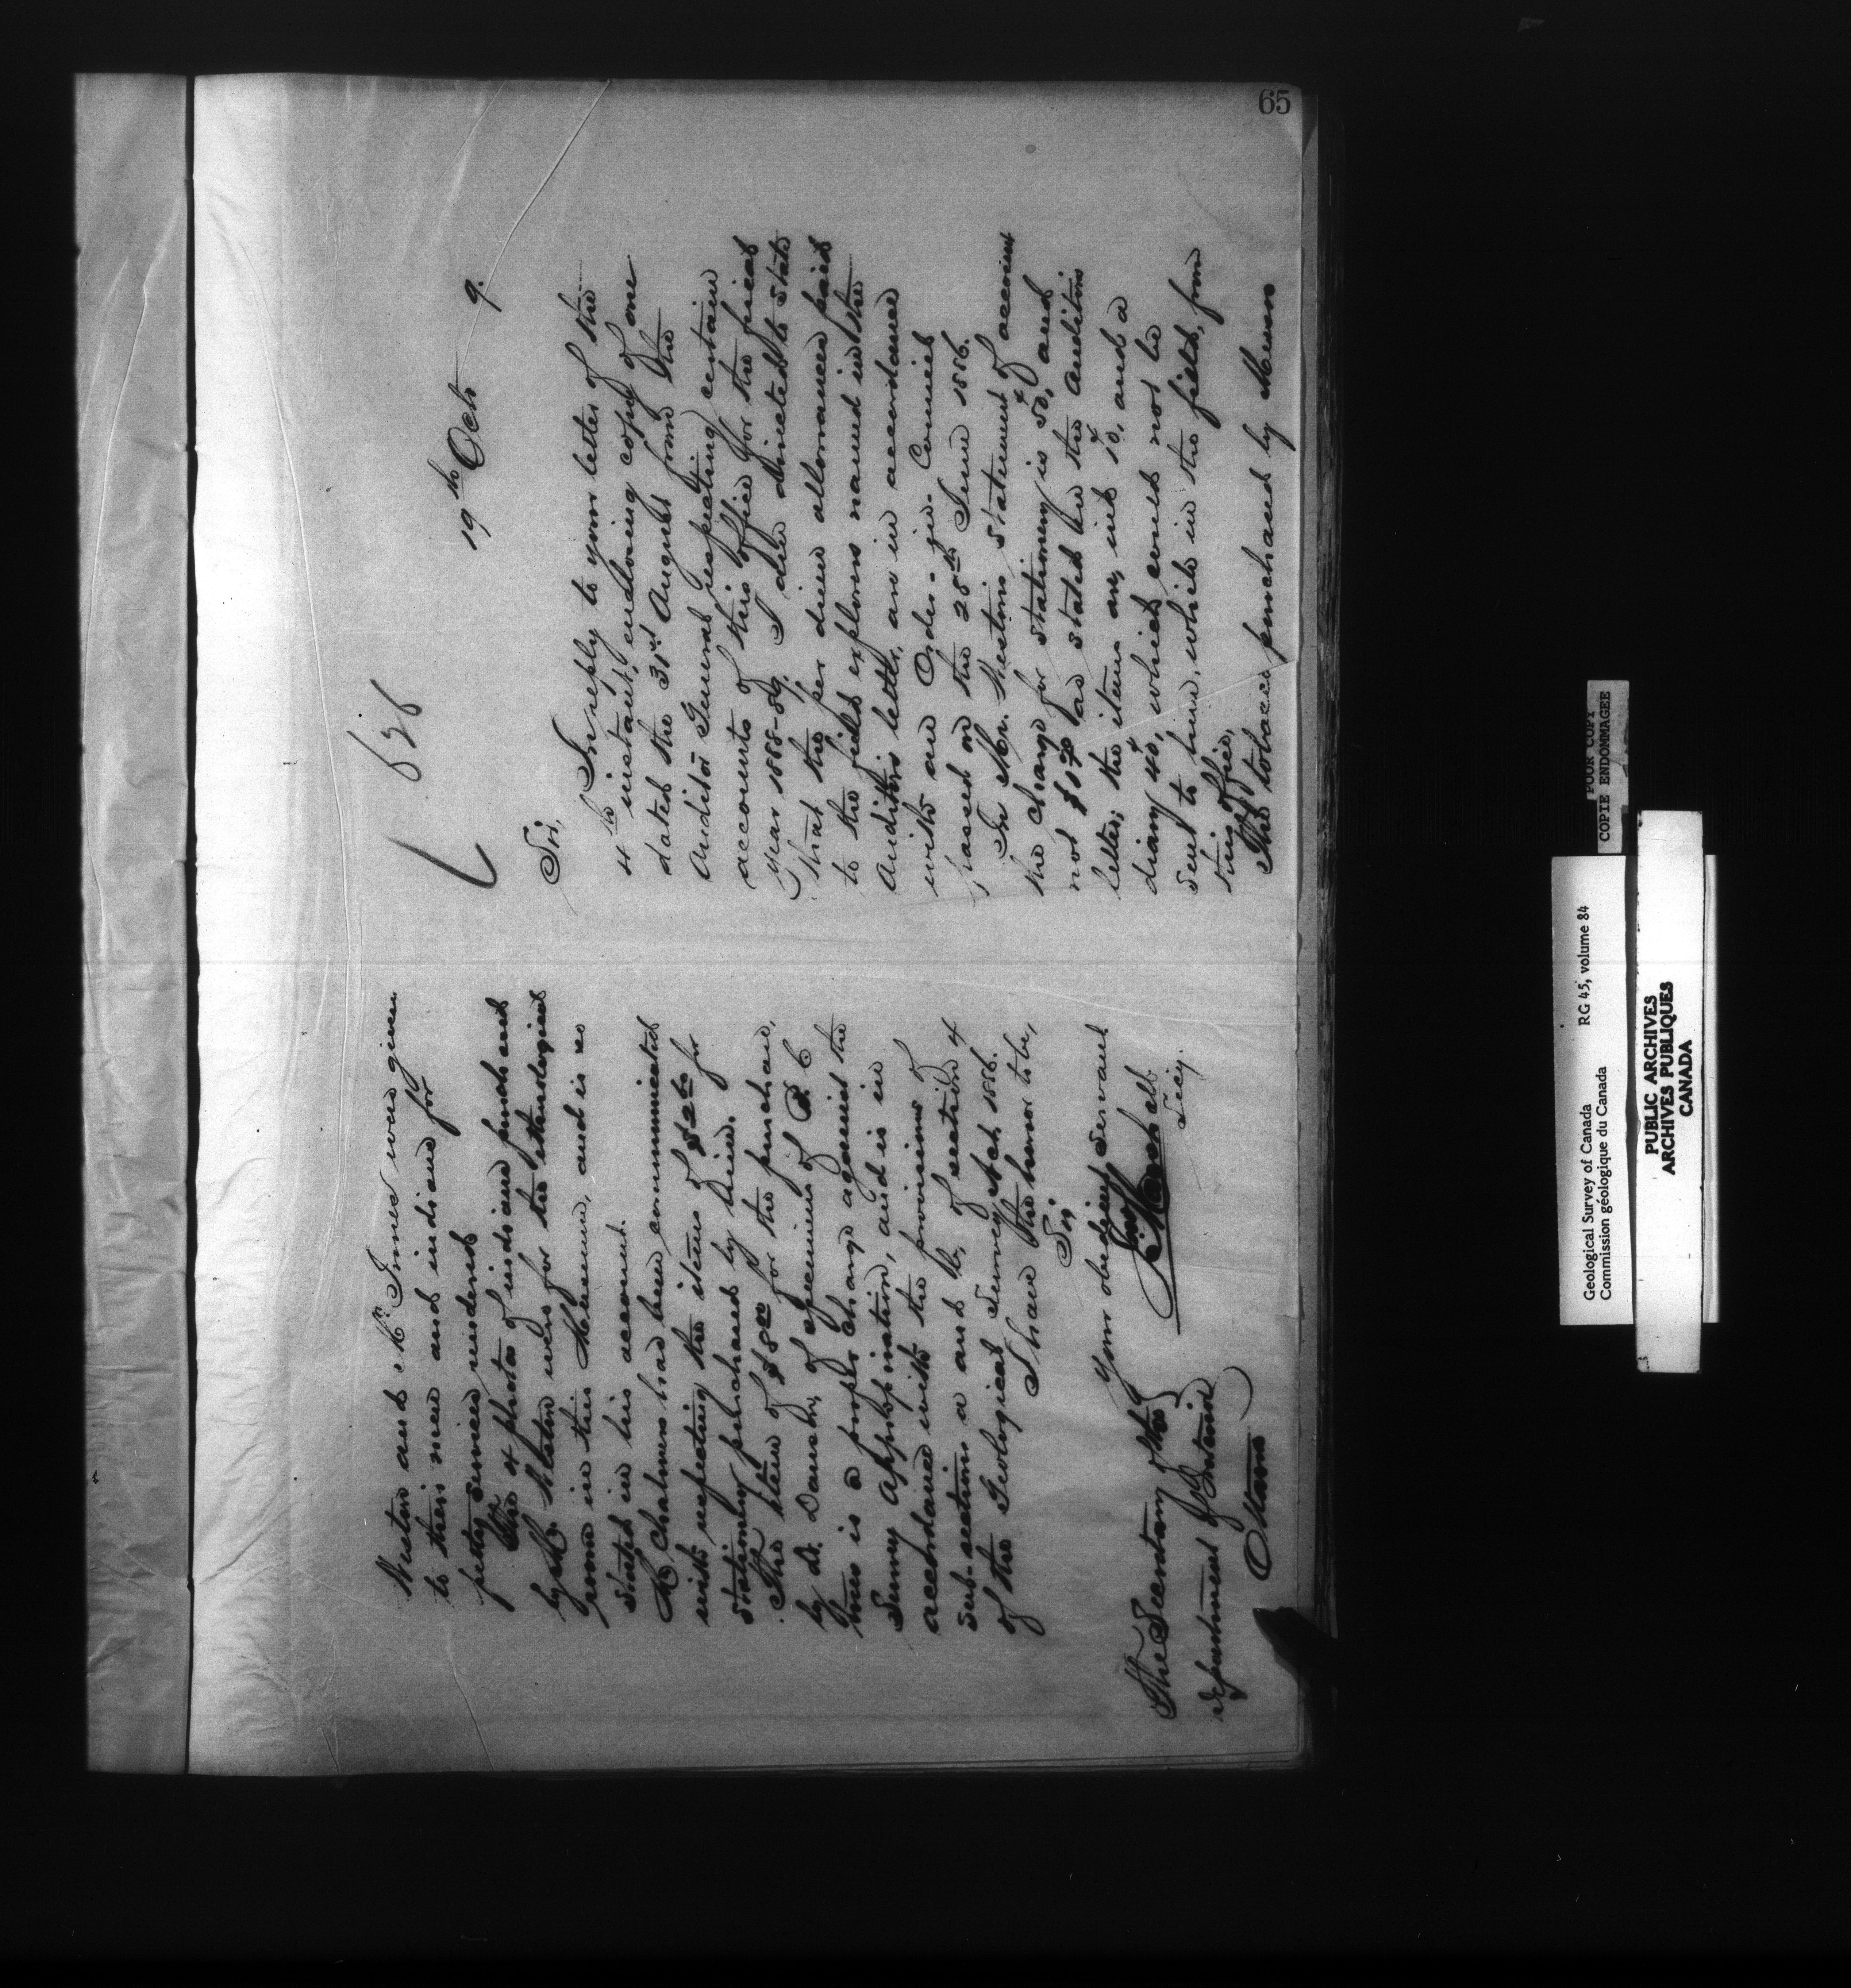 65
636
19th Oct 9.
Sir,
In reply to your letter of the
4th instant, enclosing copy of one
dated the 31st August from the
Auditor General respecting certain
accounts of this office for the fiscal
year 1888-89. I am directed to state
that the per diem allowances paid
to the field explorers named in the
Auditors letter, are in accordance
with an Order-in-Council
passed on the 28th June 1886.
In Mr. Westons statement of account
the charge for stationery is 50, and
not $1.70 as stated in the Auditors
letter; the items are, ink 10, and a
diary 40, which could not be
sent to him, while in the field, from
this office.
The tobacco purchased by Messrs
Weston and Mr. Innes was given
to their men and indians for
petty services rendered.
The 4 photos of indians purchased
by Mr. Weston were for the ethnological
room in this Museum, and is so
stated in his account.
Mr. Chalmers has been communicated
with respecting the items of for
stationery purchased by him.
The item of $8.00 for the purchase,
by Dr. Dawson, of specimens of B. C
this is a proper charge against the
Survey Appropriation, and is in
accordance with the provisions of
sub-sections a and b, of section 4
of the Geological Survey Act, 1886.
I have the honor to be,
Sir,
Your obedient servant
Secy.
The Secretary of the
Department of Interior
Ottawa
POOR COPY
COPIE ENDOMMAGEE
Geological Survey of Canada RG 45, volume 84
Commission géologique du Canada
PUBLIC ARCHIVES
ARCHIVES PUBLIQUES
CANADA